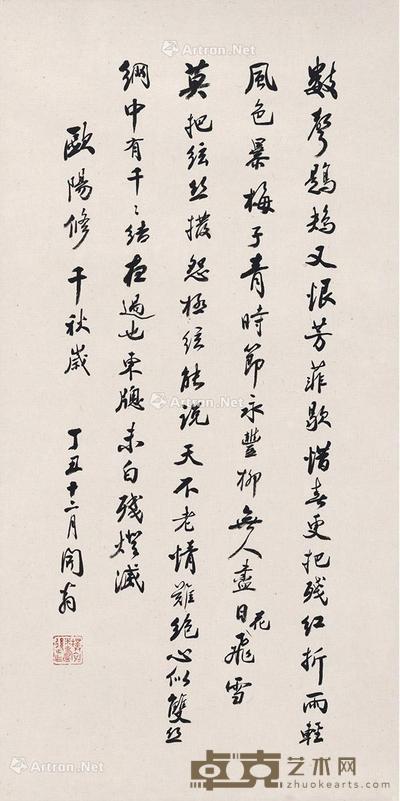 數聲鶗鴂又恨芳菲歇惜春更把殘紅折雨輕
風色暴梅子青時節永豐柳無人盡日花飛雪
莫把絃絲撥怨極絃能說天不老情難絕心似雙絲
網中有千〻結夜過也東牕未白殘燈滅
歐陽修 千秋歲 丁丑十二月
Artron.Net
Artron.Net
Artron.Net
Artron.Net
Artron.Net
卓克艺术网
www.zhuokearts.com